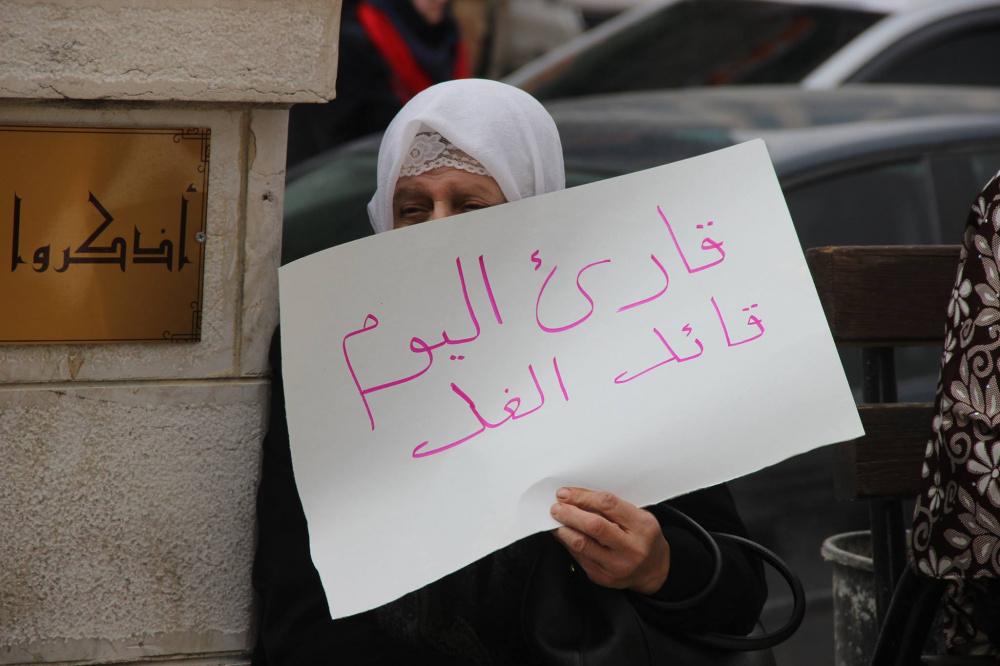 أذكروا
قارئ اليوم
قائد الغد